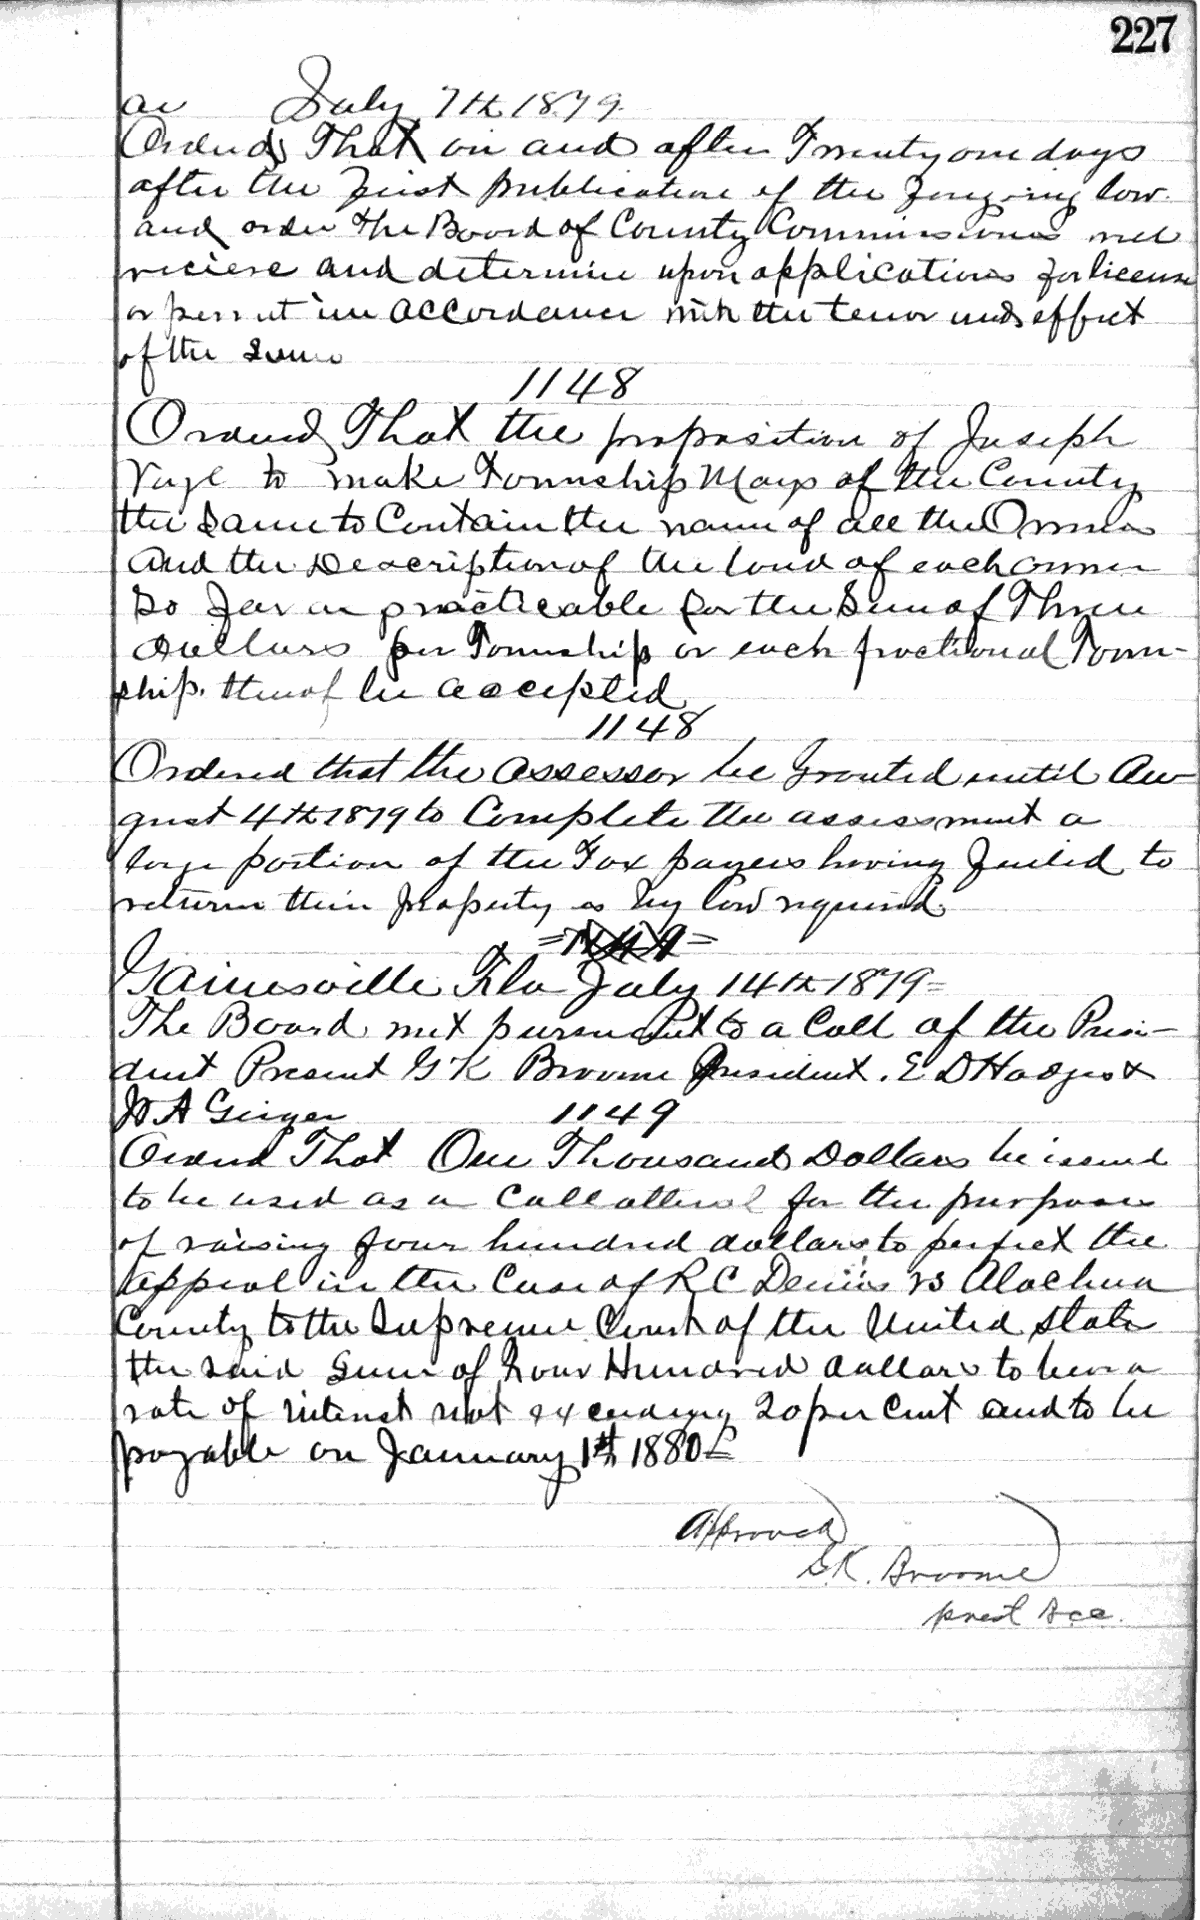 227
July 7th 1879.
Ordered That on and after Twenty one days
after the First publication of the Foregoing law
and order the Board of County Commissioners will
recieve and determine upon applications for license
or permit in accordance with the tenor and effect
of the same
1148
Ordered That the proposition of Joseph
to make Township Maps of the County
the same to Contain the name of all the Owners
and the Description of the land of each owner
so far as practicable for the Sum of Three
dollars per Township or each fractional Town-
ship thereof be accepted
1148
Ordered that the assessor be granted until Au-
gust 4th 1879 to Complete the assessment a
large portion of the Tax payers having failed to
return their property as by law required.
=1149=
Gainesville Fla July 14th 1879=
The Board met pursuant to a Call of the Presi-
dent Present G K Broome President. E D Hodges &
W A Geiger 1149
Ordered That One Thousand Dollars be issued
to be used as a Collatteral for the purpose
of raising four hundred dollars to perfect the
appeal in the Case of R C Dennis vs Alachua
County to the Supreme Court of the United State
the said Sum of Four Hundred dollars to bear a
rate of interest not exceeding 20 per Cent and to be
payable on January 1st 1880
Approved
G.K. Broome
prest